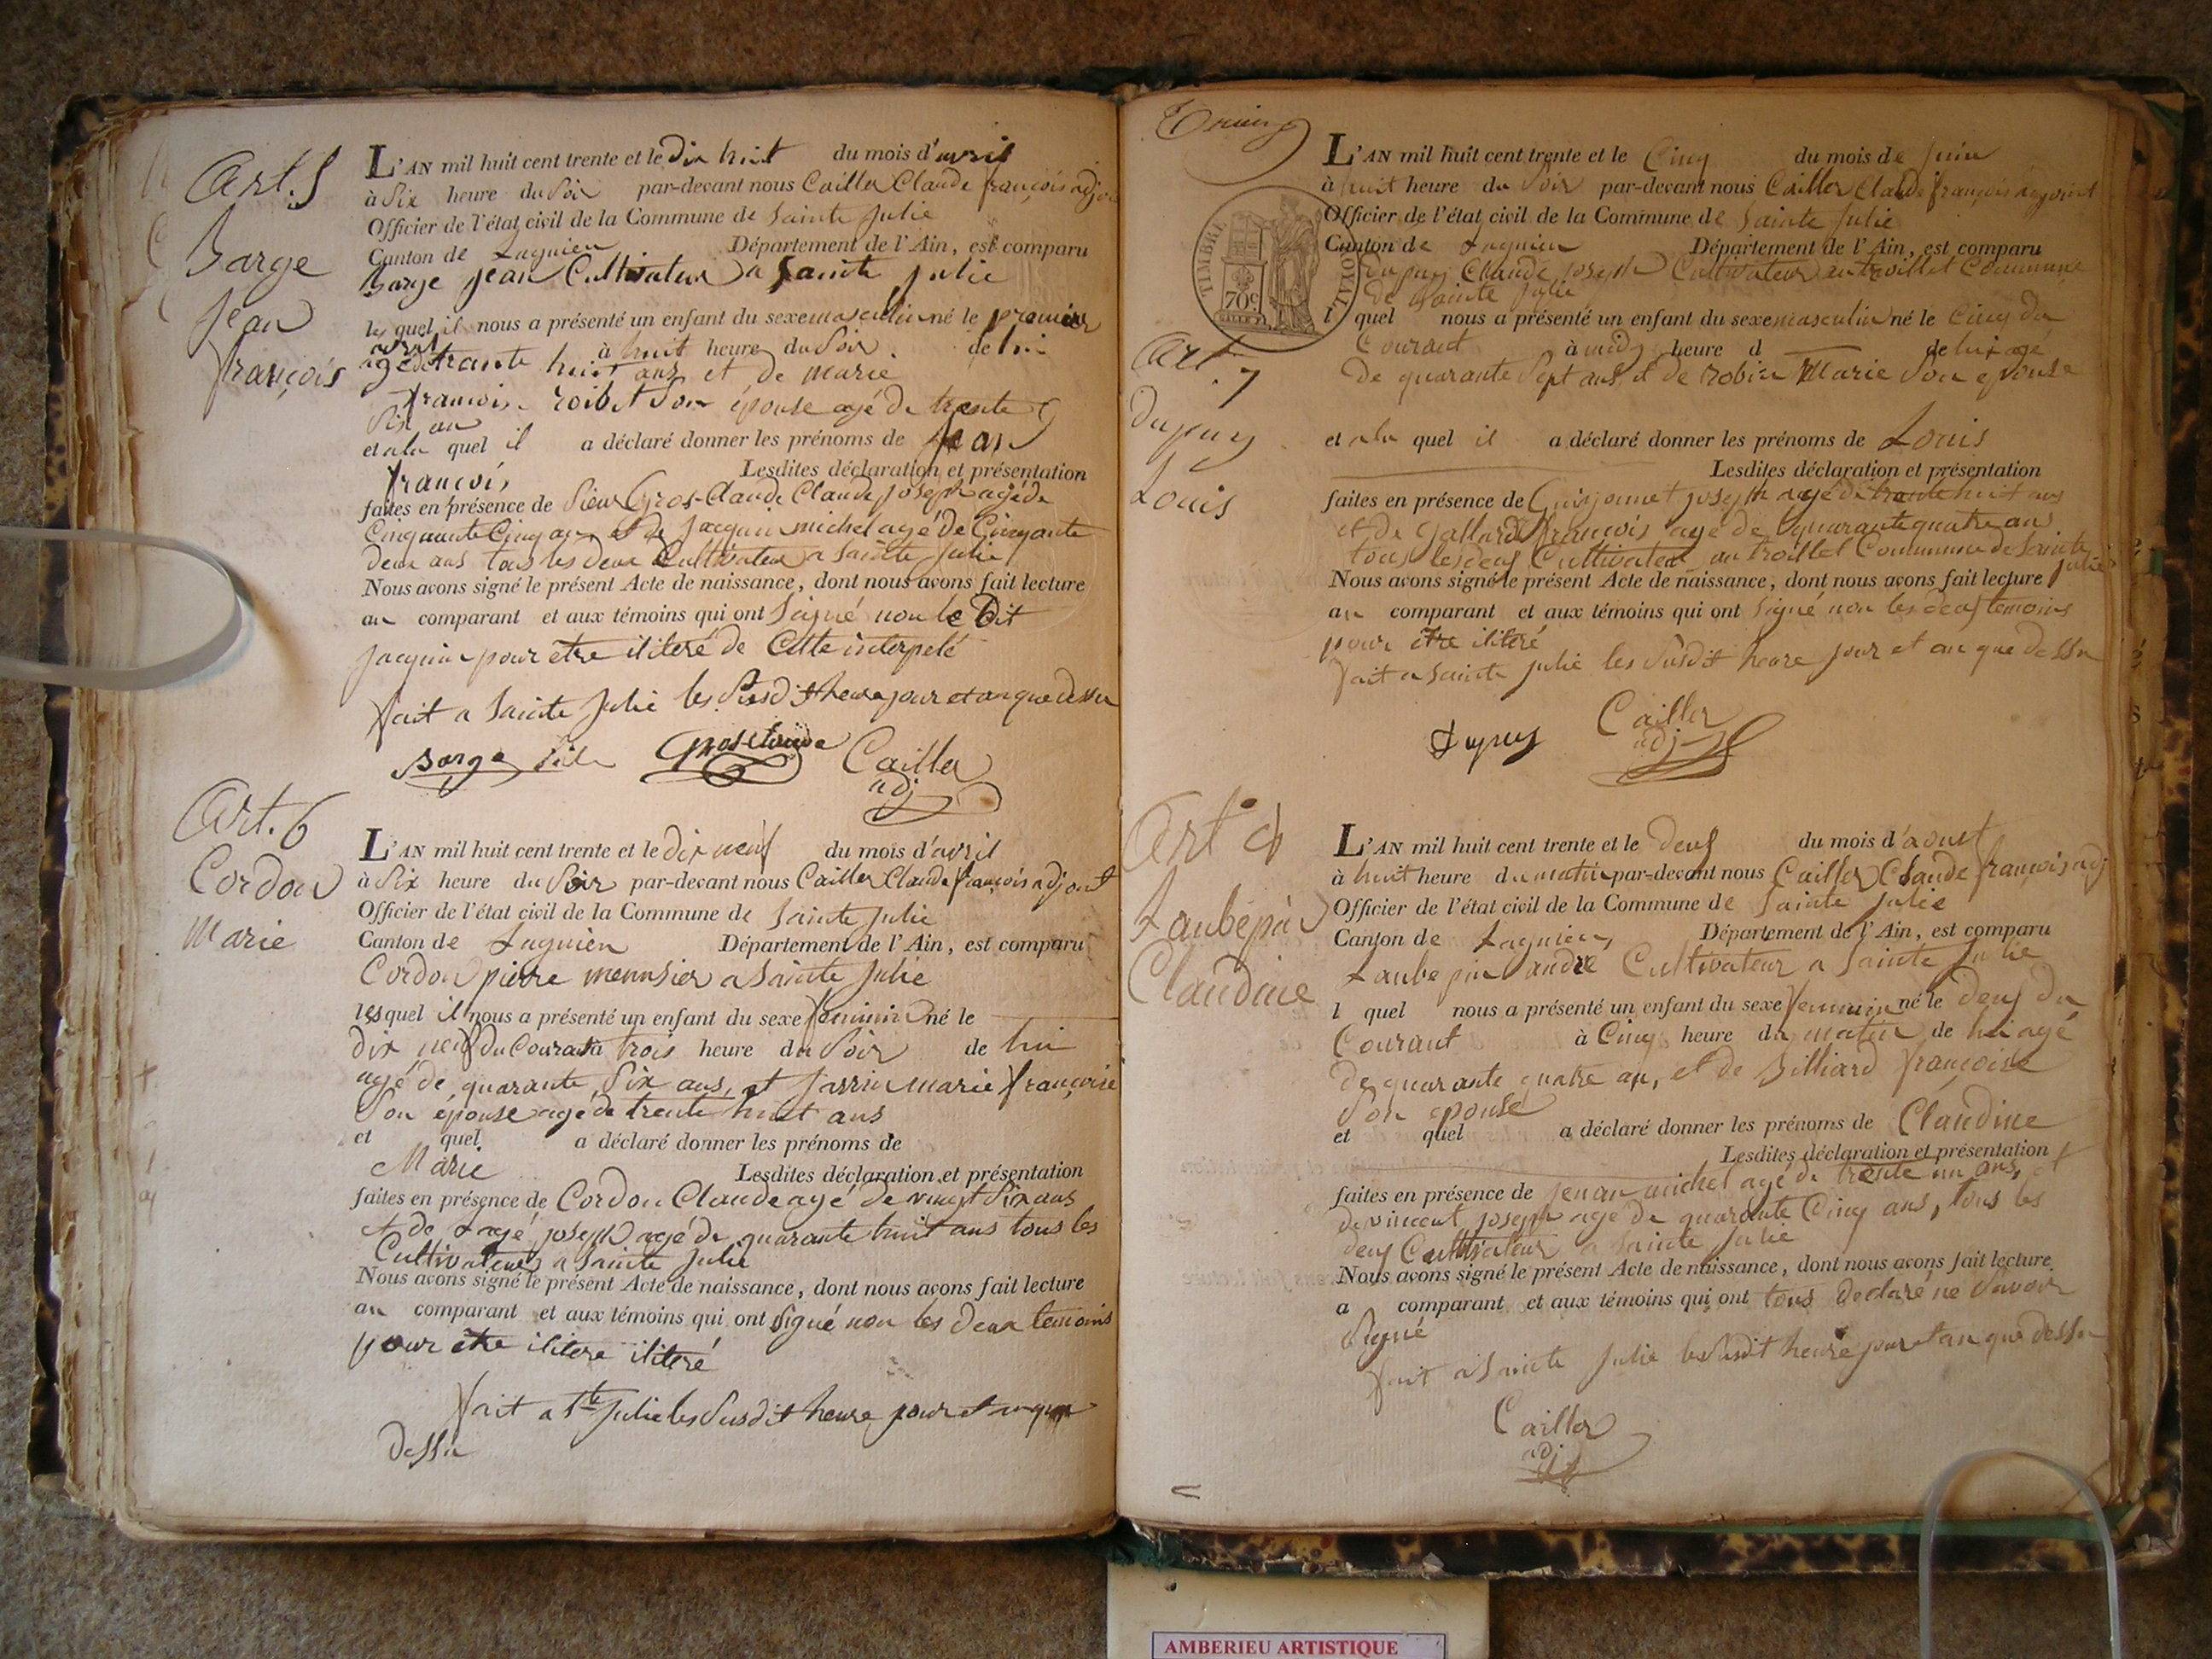 Art. 5
Barge
Jean
françois
L'AN mil huit cent trente et le dix huit du mois d'avril
à Six heure du Soir par-devant nous Cailler Claude françois adjoint
Officier de l'état civil de la Commune de Sainte Julie
Canton de Lagnieu Département de l'Ain, est comparu
Barge jean Cultivateur a Sainte Julie
lequel il nous a présenté un enfant du sexe masculin né le premier
avril à huit heure du Soir de lui
agé de trante huit ans et de marie
françoise roibet Son épouse agé de trente
Six an
et a la quel il a déclaré donner les prénoms de Jean
françois Lesdites déclaration et présentation
faites en présence de Sieur Gros-Claude Claude joseph agé de
Cinquante Cinq an et de jacquin michel agé de Cinquante
deux ans tous les deux Cultivateur a Sainte Julie
Nous avons signé le présent Acte de naissance, dont nous avons fait lecture
au comparant et aux témoins qui ont Signé non le Dit
jacquin pour etre iliteré de Cette interpelé
fait a Sainte Julie les Susdit heure jour et an que dessu
Barge Gros-Claude Cailler
adj
Art. 6
Cordon
Marie
L'AN mil huit cent trente et le dix neuf du mois d'avril
à Six heure du Soir par-devant nous Cailler Claude françois adjoint
Officier de l'état civil de la Commune de Sainte Julie
Canton de Lagnieu Département de l'Ain, est comparu
Cordon pierre menusier a Sainte Julie
lesquel il nous a présenté un enfant du sexe féminin né le
dix neuf du Courant à trois heure du Soir de lui
agé de quarante Six ans, et jarrin marie françoise
Son épouse agé de trente huit ans
et quel a déclaré donner les prénoms de
Marie Lesdites déclaration et présentation
faites en présence de Cordon Claude agé de vingt Six ans
et de Lagé joseph agé de quarante huit ans tous les
Cultivateurs a Sainte Julie
Nous avons signé le présent Acte de naissance, dont nous avons fait lecture
au comparant et aux témoins qui ont Signé non les deux temoins
pour être ilitere iliteré
fait a Ste Julie les Susdit heure jour et an que
dessu
L'AN mil huit cent trente et le Cinq du mois de Juin
à huit heure du Soir par-devant nous Cailler Claude françois adjoint
Officier de l'état civil de la Commune de Sainte Julie
Canton de Lagnieu Département de l'Ain, est comparu
TIMBRE ROYAL
70c
Art. 7
Dupuy
Louis
Dupuy Claude joseph Cultivateur au trolliet Commune
de Sainte Julie
l quel nous a présenté un enfant du sexe masculin né le Cinq du
Courant à midy heure d de lui agé
de quarante Sept ans et de robin Marie Son epouse
et a la quel il a déclaré donner les prénoms de Louis
Lesdites déclaration et présentation
faites en présence de joseph agé de trante huit ans
et de Gallard françois agé de quarante quatre ans
tous les deux Cultivateur au trolliet Commune de Sainte
Julie
Nous avons signé le présent Acte de naissance, dont nous avons fait lecture
au comparant et aux témoins qui ont Signé non les deux temoins
pour être iliteré
fait a Sainte Julie les Susdit heure jour et an que dessu
Dupuy Cailler
adj
Art 8
Laubépin
Claudine
L'AN mil huit cent trente et le deux du mois d'aout
à huit heure du matin par-devant nous Cailler Claude françois adj
Officier de l'état civil de la Commune de Sainte Julie
Canton de Lagnieu Département de l'Ain, est comparu
Laubepin andré Cultivateur a Sainte Julie
l quel nous a présenté un enfant du sexe feminin né le deux du
Courant à Cinq heure du matin de lui agé
de quarante quatre an, et de Billiard françoise
Son epouse
et quel a déclaré donner les prénoms de Claudine
Lesdites déclaration et présentation
faites en présence de michel agé de trente un ans, et
de vincent joseph agé de quarante Cinq ans, tous les
deux Cultivateur a Sainte Julie
Nous avons signé le présent Acte de naissance, dont nous avons fait lecture
a comparant et aux témoins qui ont tous declaré ne Savoir
Signé
fait a Sainte Julie le Susdit heure jour et an que dessu
Cailler
adj
AMBERIEU ARTISTIQUE